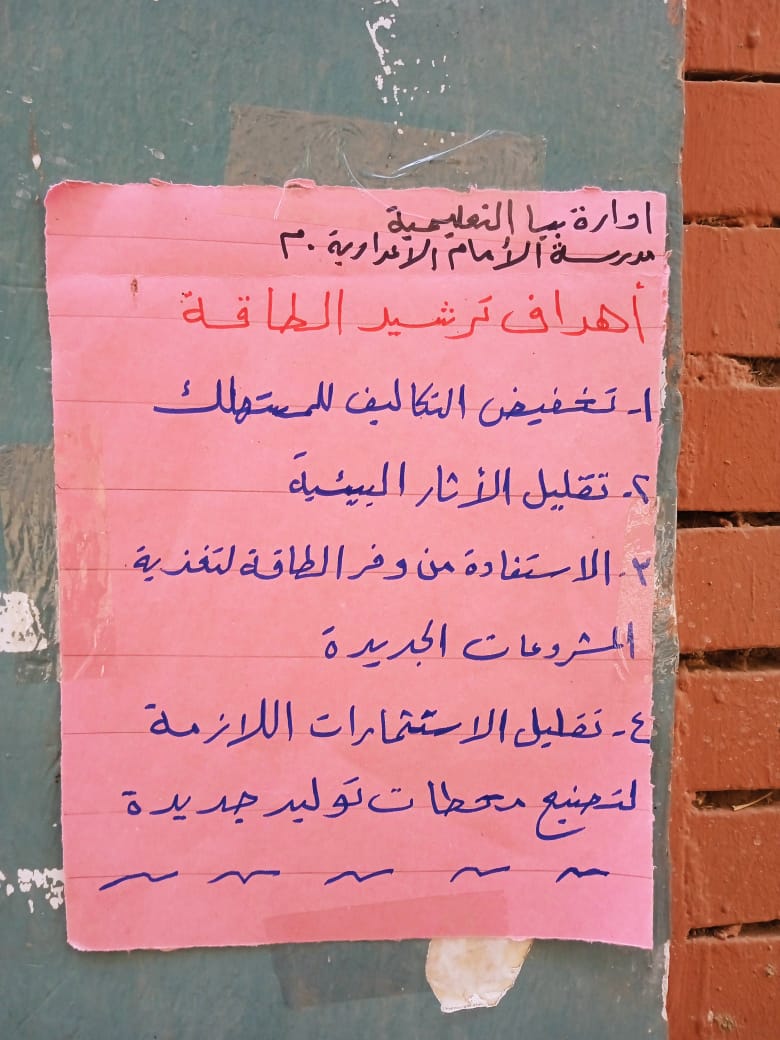 ادارة ببا التعليمية
مدرسة الأمام الاعدادية .م
أهداف ترشيد الطاقة
١- تخفيض التكاليف للمستهلك
٢- تقليل الأثار البيئية
٣- الاستفادة من وفر الطاقة لتغذية
المشروعات الجديدة
٤- تقليل الاستثمارات اللازمة
لتصنيع محطات توليد جديدة